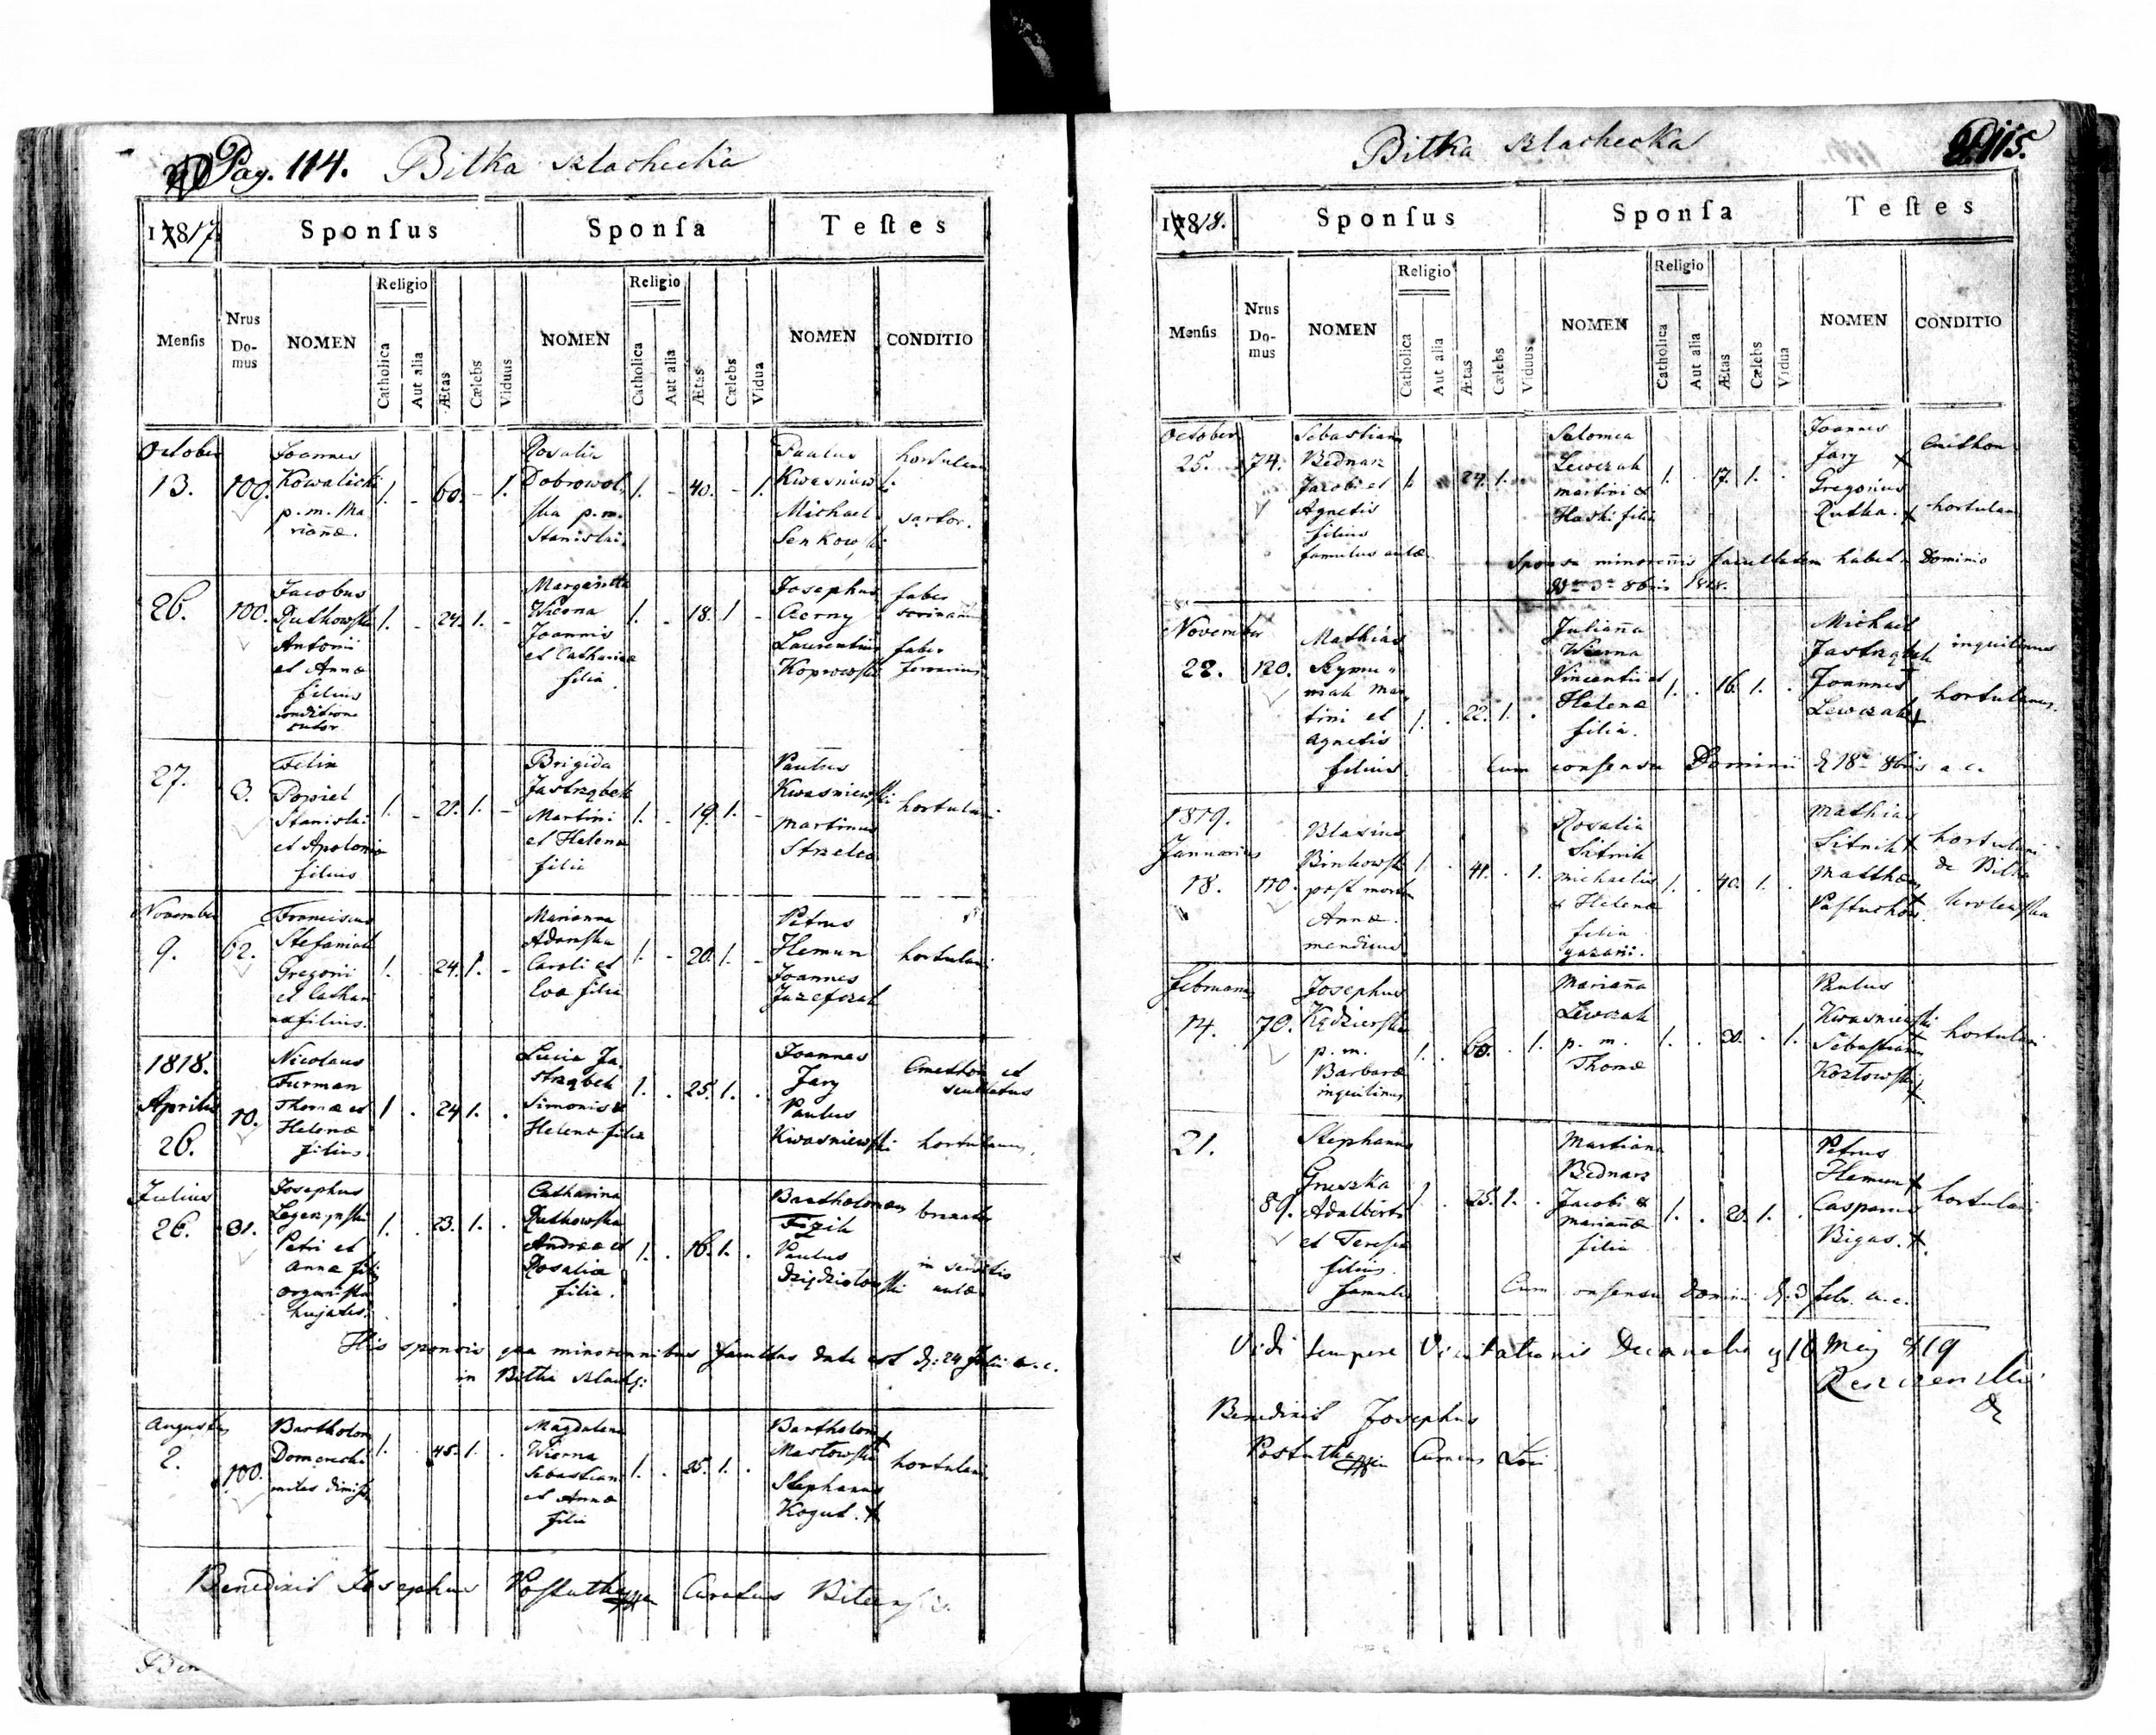 Pag. 114. Bitka szlachecka
17817
Sponsus Sponsa Testes
Mensis
Nrus Domus
NOMEN
Religio
Catholica
Aut alia
Ætas
Cælebs
Viduus
NOMEN
Religio
Catholica
Aut alia
Ætas
Cælebs
Vidua
NOMEN
CONDITIO
October
13. 100.
Joannes
Kowalicki
p. m. Ma
riañæ.
1. - 60. - 1.
Rosalia
Dobrowol
ska p. m.
Stanislai.
1. - 40. - 1.
Paulus
Kwasniewski
Michael
Senkowski
hortulan
sartor.
26. 100.
Jacobus
Rutkowski
Antonii
et Annæ
filius
conditione
sutor
1. - 24. 1. -
Margaretta
Wierna
Joannis
et Catharinæ
filia
1. - 18. 1 -
Josephus
Czerny
Laurentius
Koprowski
faber
faber
ferrarius
27. 3.
Felix
Popiel
Stanislai
et Apolonia
filius
1. - 21. 1. -
Brigida
Jastrząbek
Martini
et Helenæ
filia
1. - 19. 1. -
Paulus
Kwasniewski
Martinus
Strzelec
hortulani
November
9. 62.
Franciscus
Stefaniak
Gregorii
et Cathari
næ filius.
1. - 24. 1. -
Marianna
Adamska
Caroli et
Evæ filia
1. - 20. 1. -
Petrus
Hemun
Joannes
Juzefczak
hortulani
1818.
Aprilis
26. 10.
Nicolaus
Furman
Thomæ et
Helenæ
filius.
1 . 24 1. .
Lucia Ja
strząbek
Simonis &
Helenæ filia
1. . 25. 1. .
Joannes
Jary
Paulus
Kwasniewski
Cmethon et
scultetus
hortulanus.
Julius
26. 31.
Josephus
Petri et
Annæ fil
organista
hujatis.
1. . 23. 1. .
Catharina
Rutkowska
Andreæ et
Rosaliæ
filia.
1. . 16. 1. .
Bartholomæus
Fizik
Paulus
Dzię̨dziołowski
in servitio
aulæ
His sponsis qua minorennibus facultas data est d: 24 Julii a. c.
in Bitka szlach:
Augustus
2. 100.
Bartholom
Domerecki
miles dimiss
1. . 45. 1. .
Magdalena
Wierna
Sebastiani
et Annæ
filia
1. . 25. 1. .
Bartholom
Masłowski
Stephanus
Kogut. +
hortulani
Benedixit Josephus Curatus Bitcensis.
Ben
Bitka szlachecka
115.
17818.
Sponsus Sponsa Testes
Mensis
Nrus Domus
NOMEN
Religio
Catholica
Aut alia
Ætas
Cælebs
Viduus
NOMEN
Religio
Catholica
Aut alia
Ætas
Cælebs
Vidua
NOMEN
CONDITIO
October
25. 74.
Sebastian
Bednarz
Jacobi et
Agnetis
filius
famulus aulæ
1. 24. 1.
Salomea
Lewczak
Martini &
filia
1. . 17. 1. .
Joannes
Jary +
Gregorius
Rutka. +
Cmethon
hortulan
Sponsa minorenis facultatem habet a Dominio
3a 8bris 1818.
November
22. 120.
Mathias
Szymu"
niak Mar
tini et
Agnetis
filius
1. . 22. 1. .
Juliana
Wierna
Vincentii et
Helenæ
filia.
1. . 16. 1. .
Michael
Jastrząbek
Joannes
Lewczak +
inquilinus
hortulanus.
Cum consensu Dominii d 18a 8bris a. c.
1819.
Januarius
18. 110.
Blasius
Binkowski
post mortem
Annæ.
mendicus
1. . 41. . 1.
Rosalia
Sitnik
Michaelis
& Helenæ
filia
1. . 40. 1. .
Mathias
Sitnik +
Mathæus
Pastuchow.
hortulani
de Bitka
krolewska
Februarius
14. 70.
Josephus
Kędzierski
p. m.
Barbaræ
inquilinus
1. . 60. . 1.
Mariana
Lewczak
p. m.
Thomæ
1. . 30. . 1.
Paulus
Kwasniewski
Sebastianus
Kozłowski +
hortulani
21. 89.
Stephanus
Gruszka
Adalberti
et Teresiæ
filius.
famulus
1. . 25. 1. .
Marianna
Bednarz
Jacobi &
Mariañæ
filia
1. . 20. 1. .
Petrus
Hemun +
Casparus
Bigas. +.
hortulani
Cum consensu Dominii d. 3 febr. a. c.
Vidi tempore Visitationis Decanalis 10 Maij 819
Benedixit Josephus
Curatus Loci